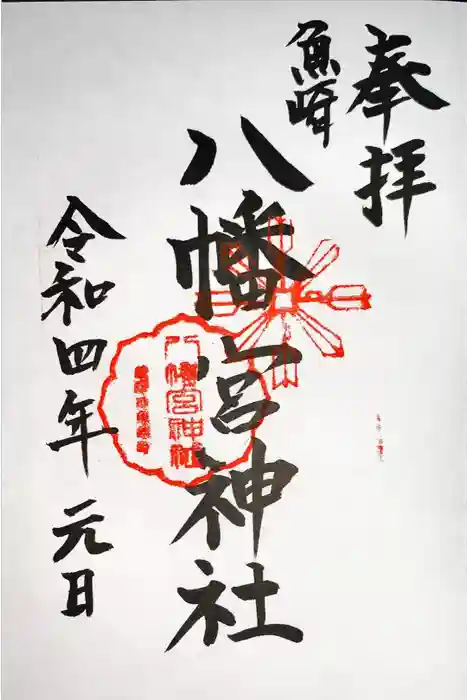 奉拝
魚崎
八幡宮神社
八幡宮神社
令和四年元日